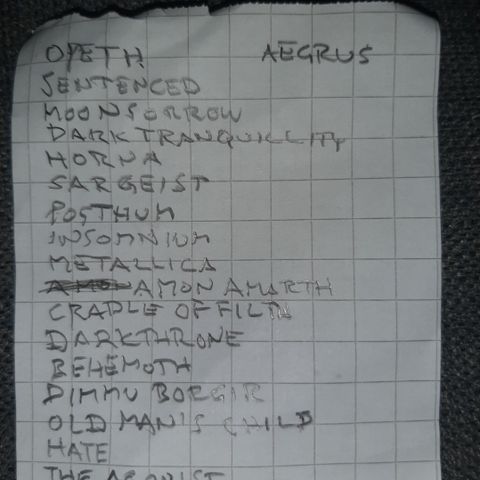 OPETH AEGRUS
SENTENCED
MOONSORROW
DARK TRANQUILLITY
HORNA
SARGEIST
POSTHUM
INSOMNIUM
METALLICA
AMON AMARTH
CRADLE OF FILTH
DARKTHRONE
BEHEMOTH
DIMMU BORGIR
OLD MAN'S CHILD
HATE
THE AGONIST